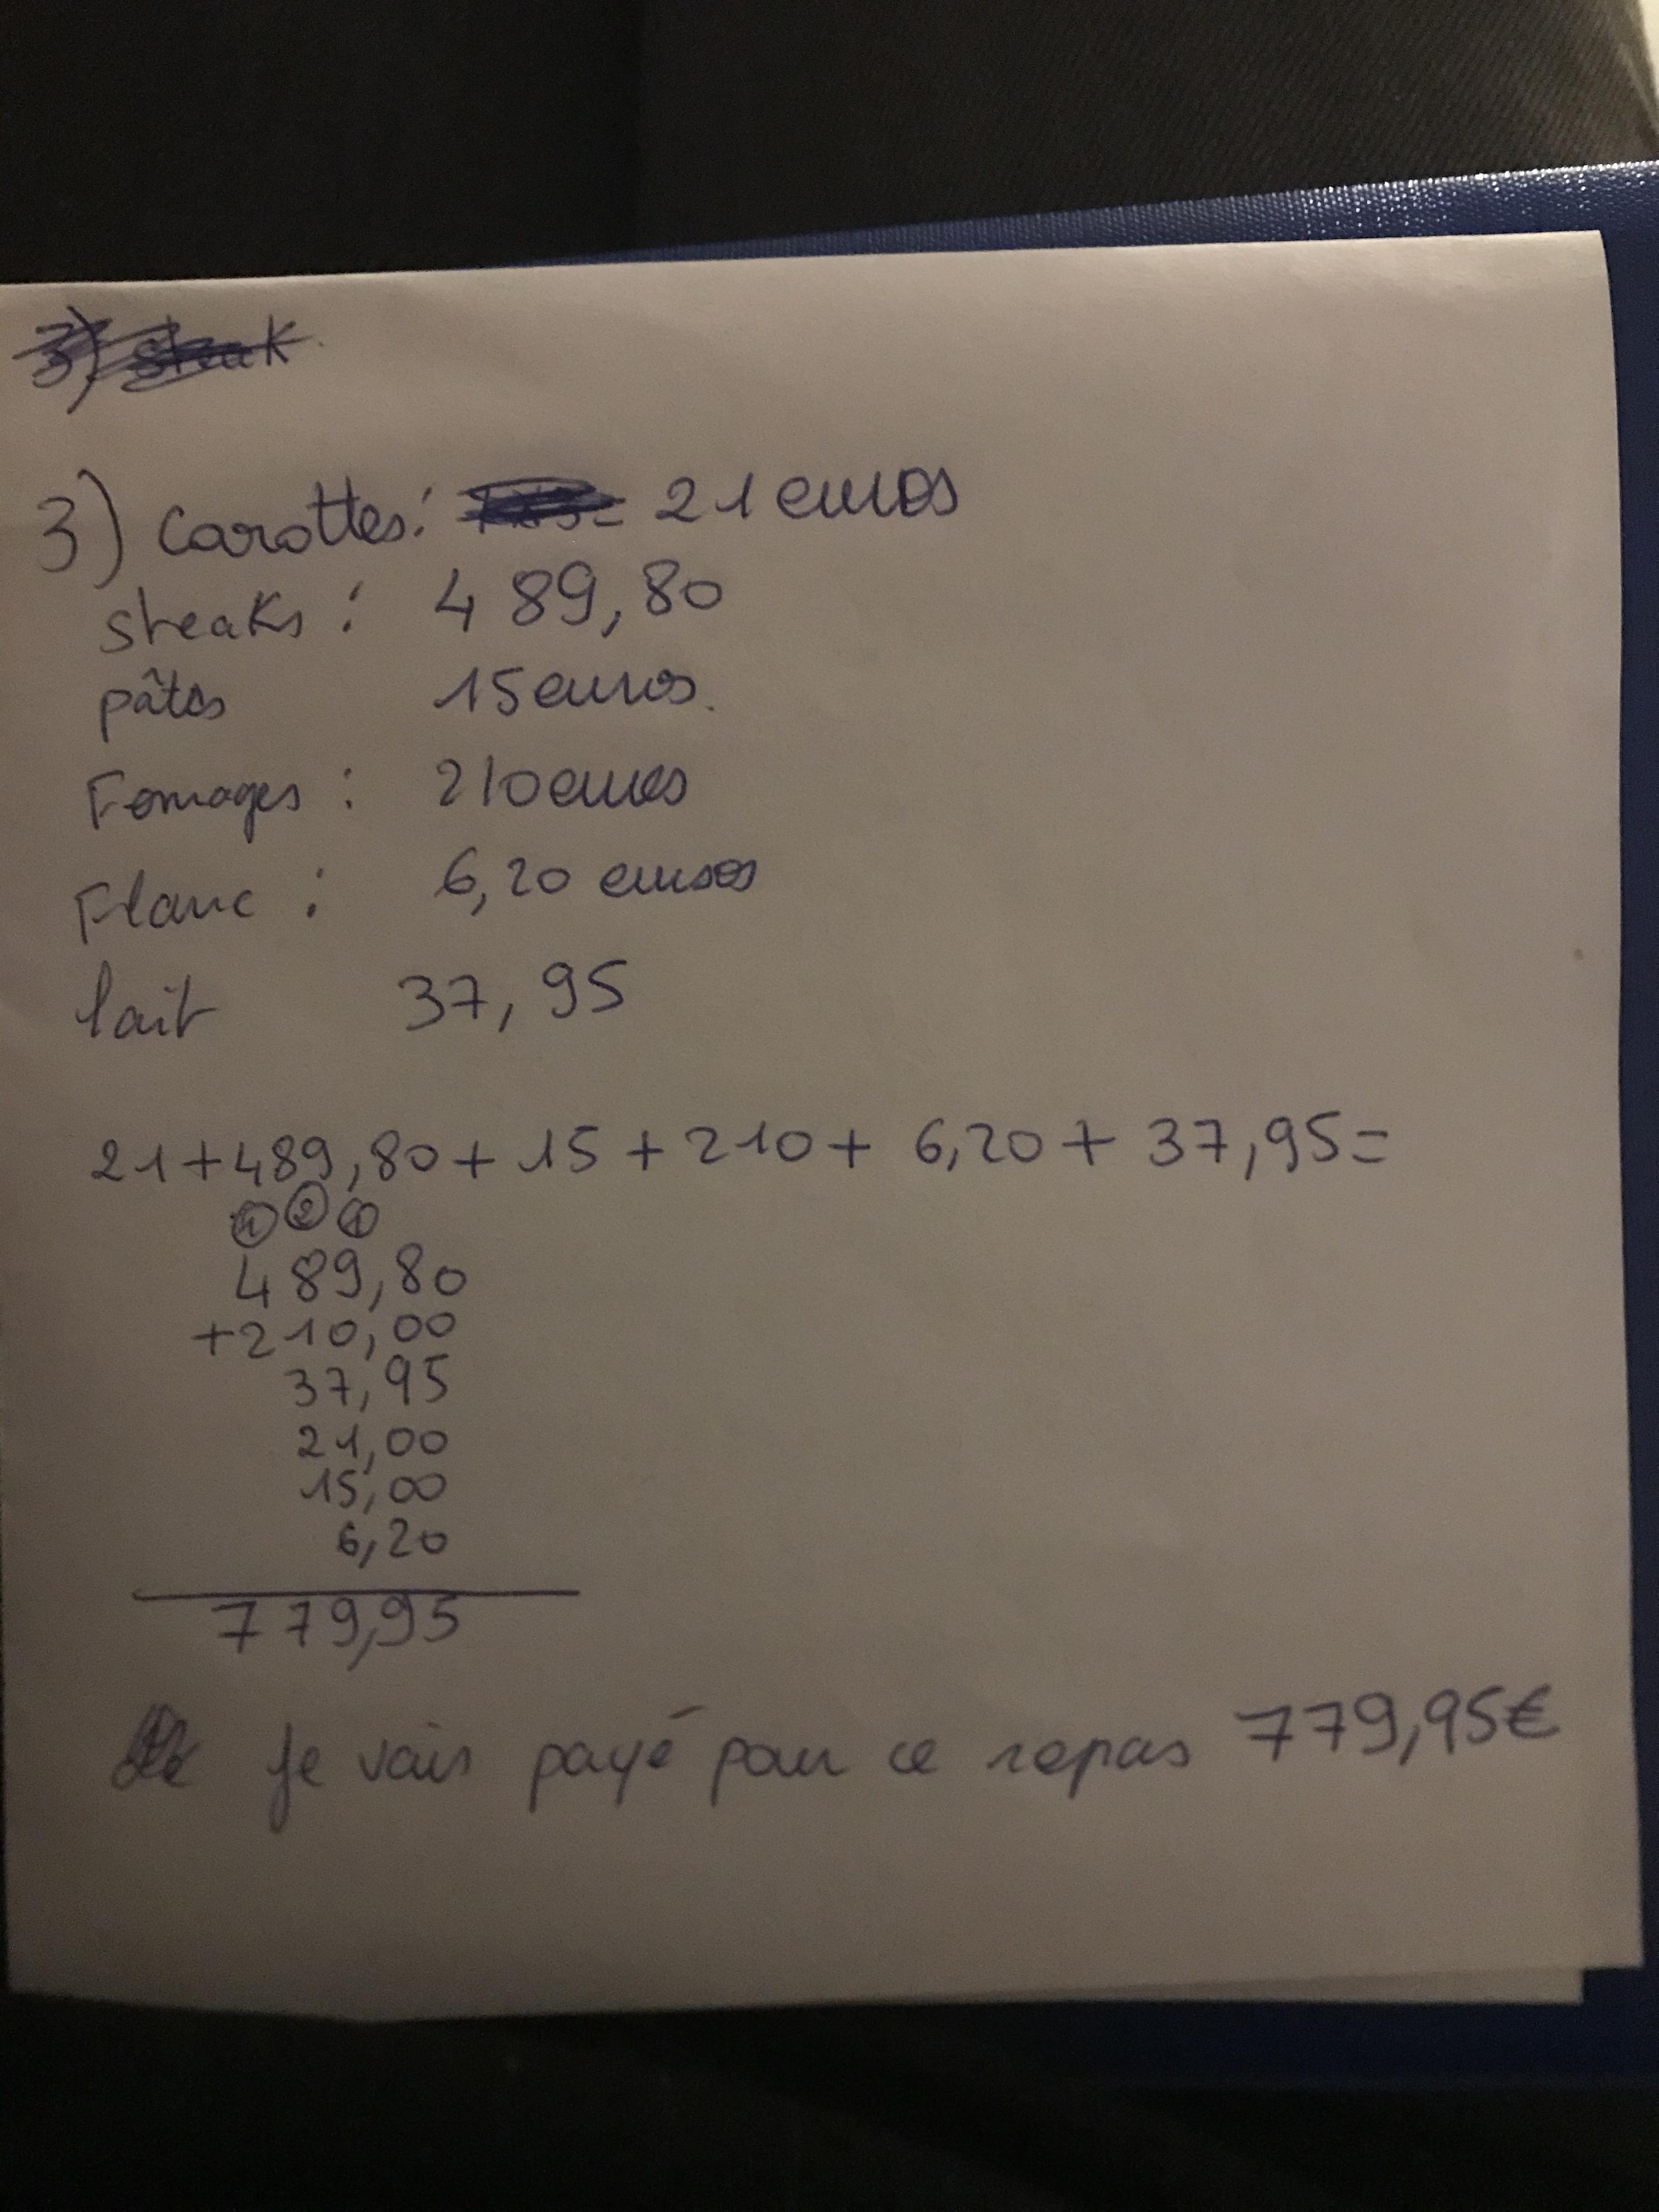 3) steak
3) carottes: 21 euros
steaks : 489,80
pâtes 15 euros.
Fomages : 210 euros
Flanc : 6,20 euros
lait 37,95
21+489,80+15+210+6,20+37,95=
1 2 1
489,80
+210,00
37,95
21,00
15,00
6,20
779,95
Je vais payé pour ce repas 779,95€